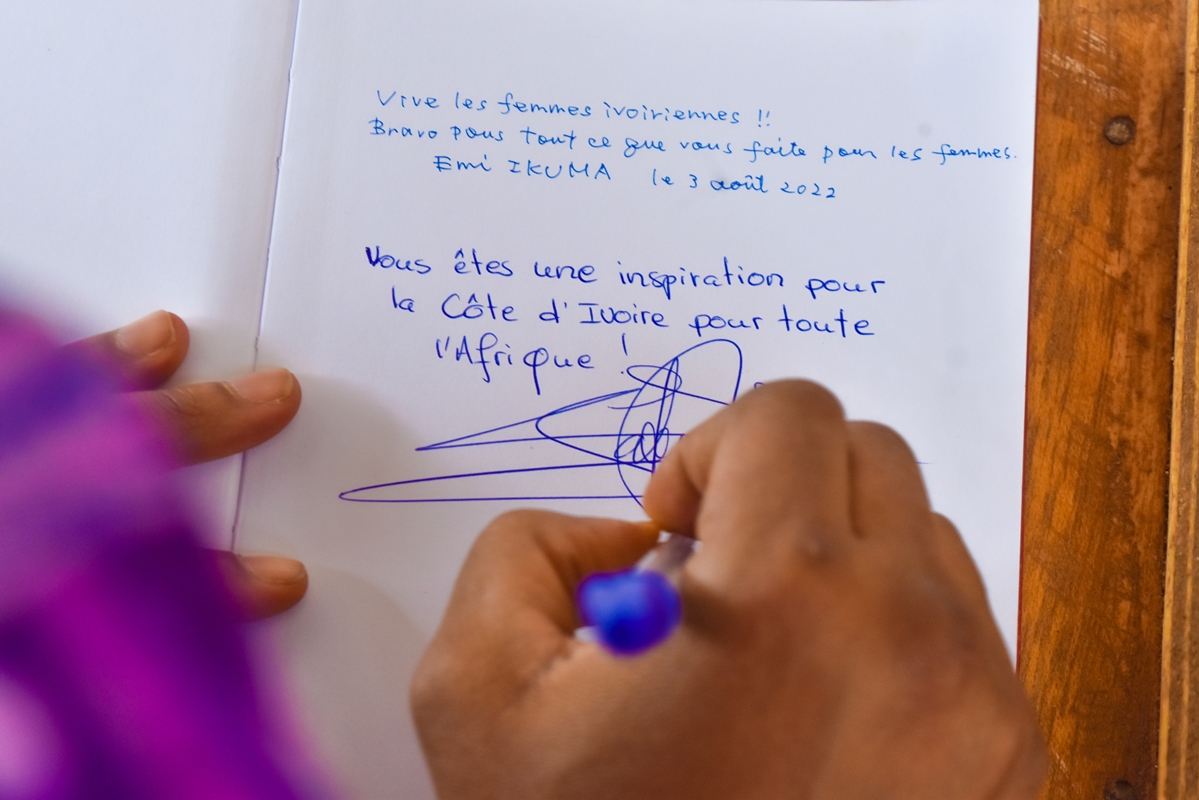 Vive les femmes ivoiriennes !!
Bravo pous tout ce que vous faite pour les femmes.
Emi IKUMA le 3 août 2022
Vous êtes une inspiration pour
la Côte d'Ivoire pour toute
l'Afrique !